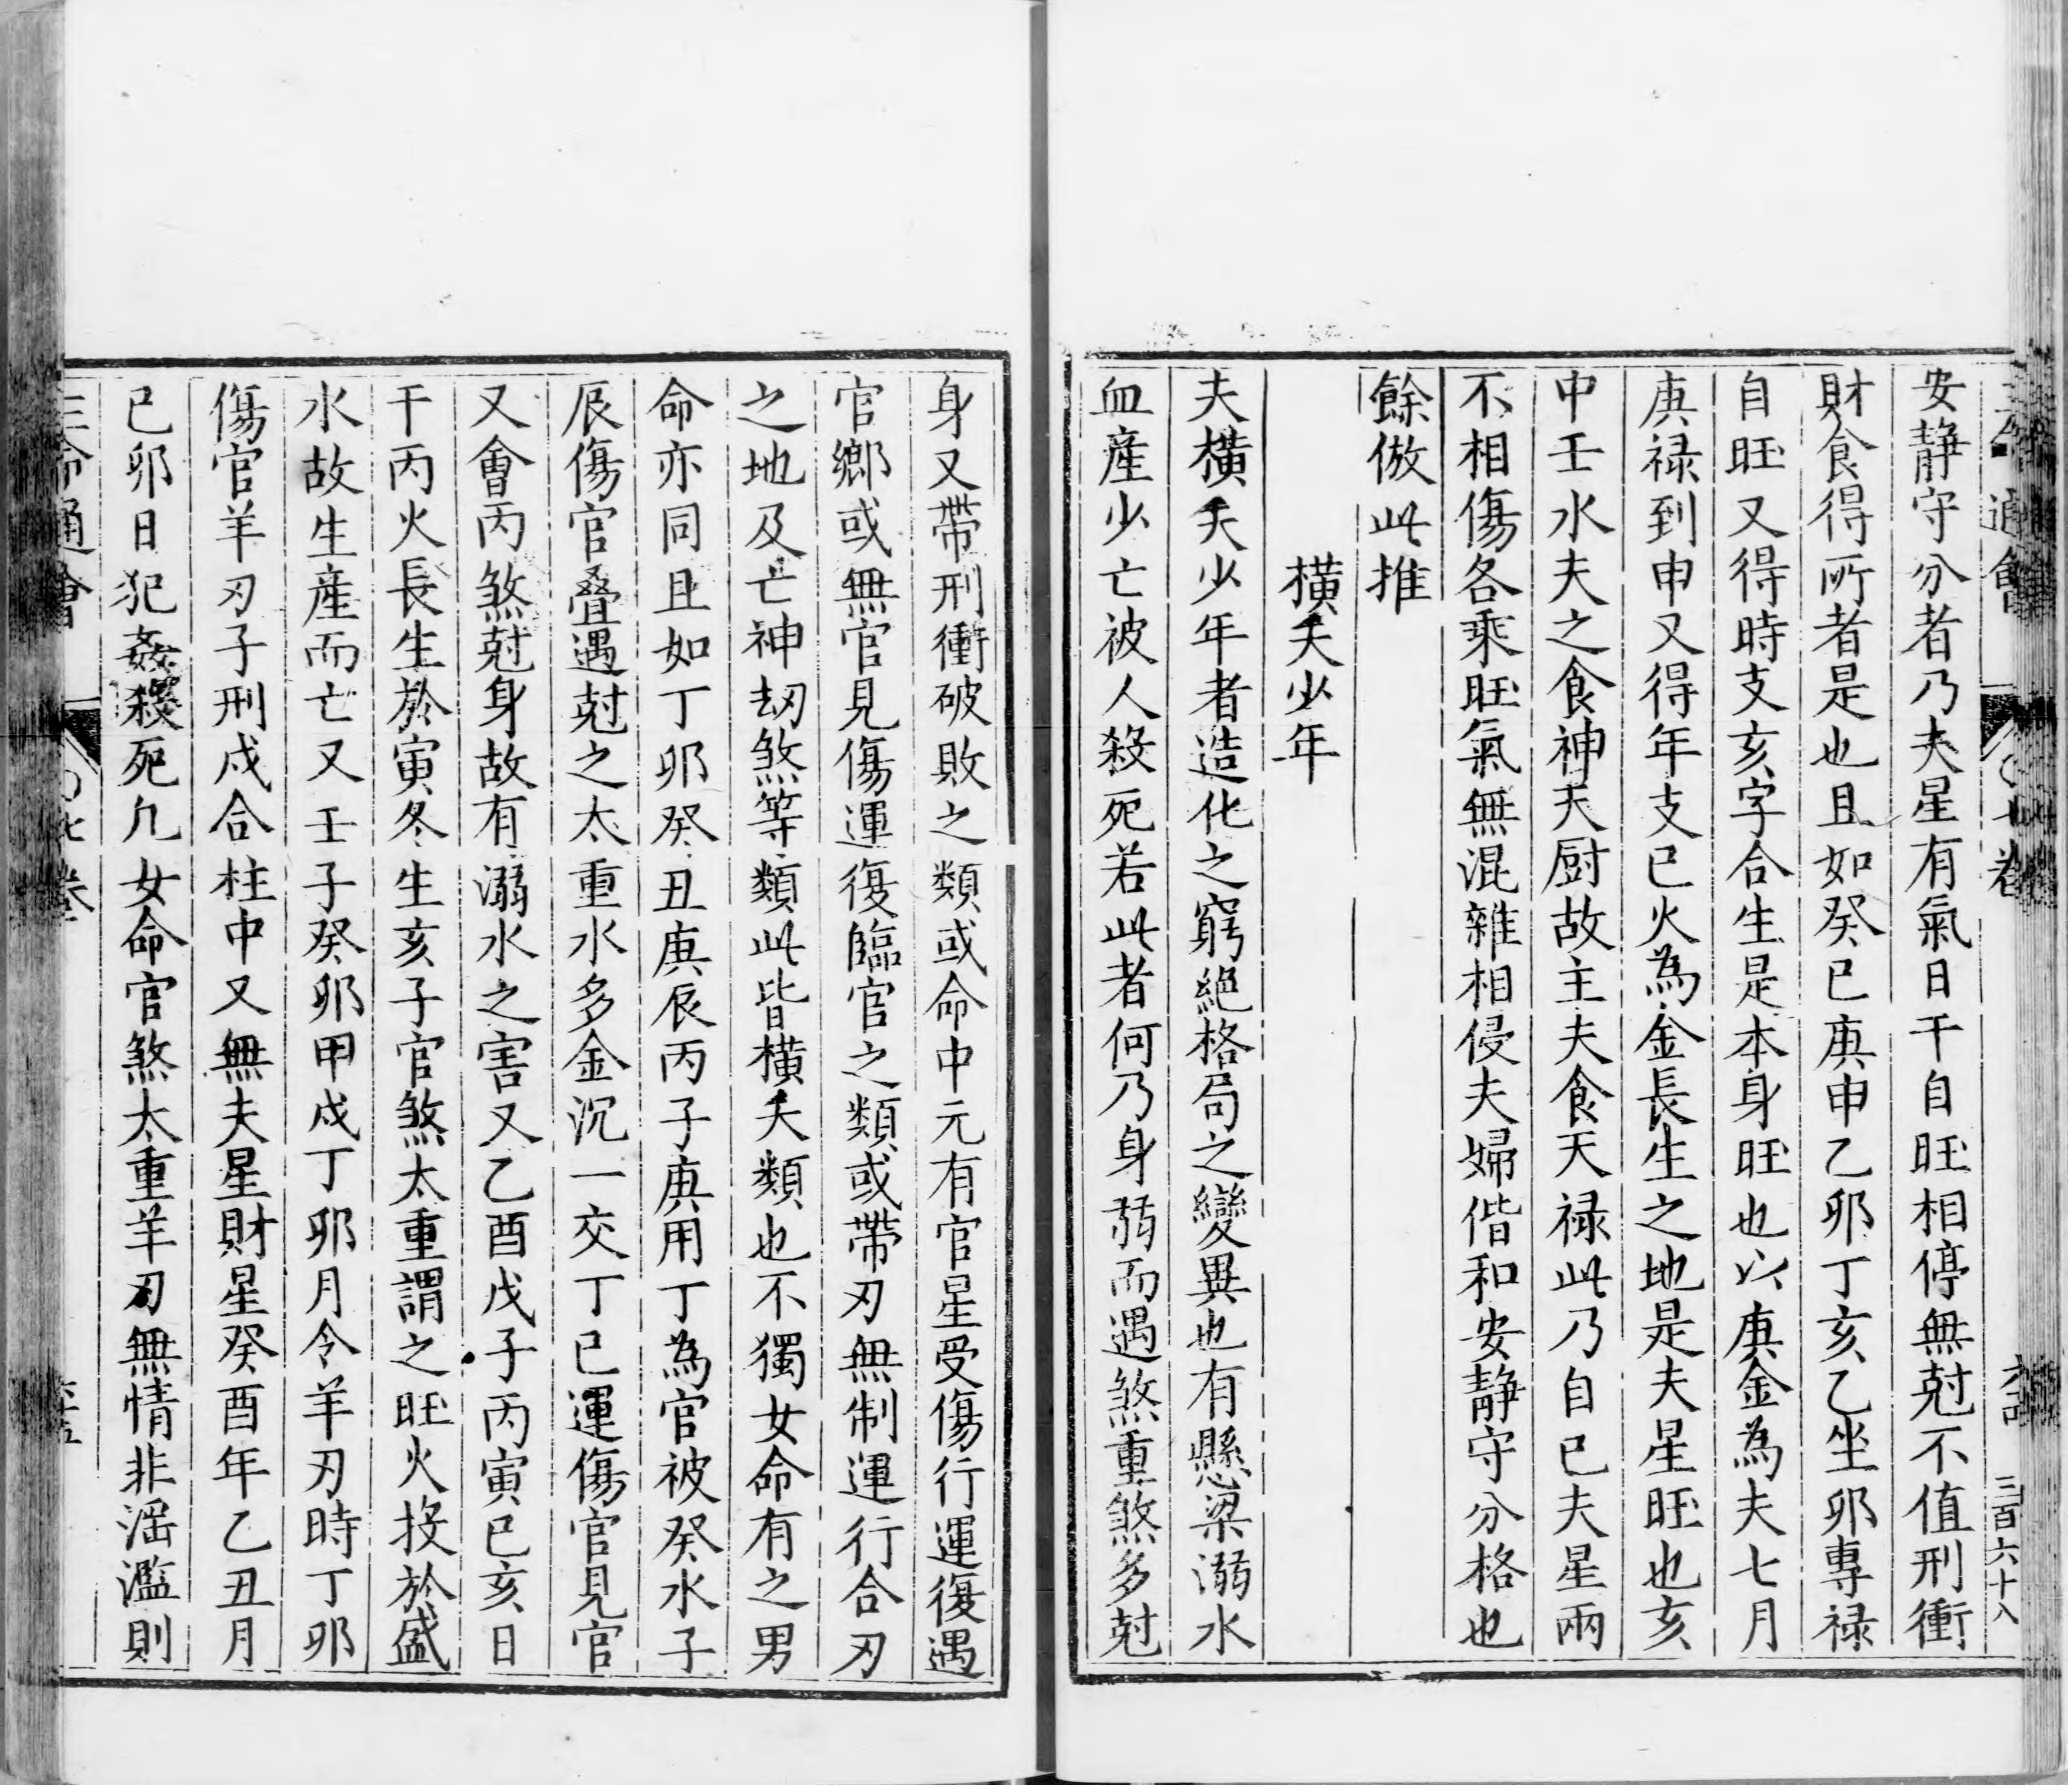 安静守分者乃夫星有氣日干自旺相停無尅不值刑衝
財食得所者是也且如癸巳庚申乙卯丁亥乙坐卯專禄
自旺又得時支亥字合生是本身旺也以庚金為夫七月
庚禄到申又得年支巳火為金長生之地是夫星旺也亥
中壬水夫之食神天厨故主夫食天禄此乃自己夫星兩
不相傷各乘旺氣無混雜相侵夫婦偕和安静守分格也
餘倣此推
橫夭少年
夫橫夭少年者造化之窮絕格局之變異也有懸梁溺水
血産少亡被人殺死若此者何乃身弱而遇煞重煞多尅
身又帶刑衝破敗之類或命中元有官星受傷行運復遇
官鄉或無官見傷運復臨官之類或帶刃無制運行合刃
之地及亡神刼煞等類此皆橫夭類也不獨女命有之男
命亦同且如丁卯癸丑庚辰丙子庚用丁為官被癸水子
辰傷官叠遇尅之太重水多金沉一交丁巳運傷官見官
又會丙煞尅身故有溺水之害又乙酉戊子丙寅己亥日
干丙火長生於寅冬生亥子官煞太重謂之旺火投於盛
水故生産而亡又壬子癸卯甲戌丁卯月令羊刃時丁卯
傷官羊刃子刑戌合柱中又無夫星財星癸酉年乙丑月
己卯日犯姦殺死凡女命官煞太重羊刃無情非滛濫則
三命通會
七卷
三百六十八